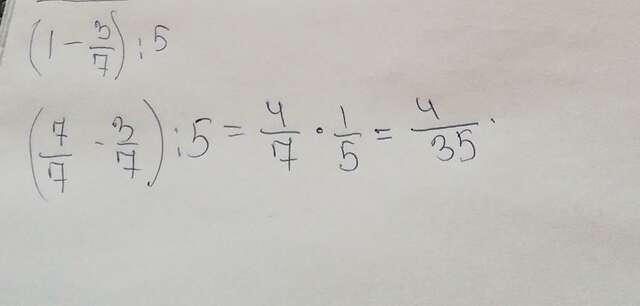 (1 - 3/7) : 5
(7/7 - 3/7) : 5 = 4/7 · 1/5 = 4/35.